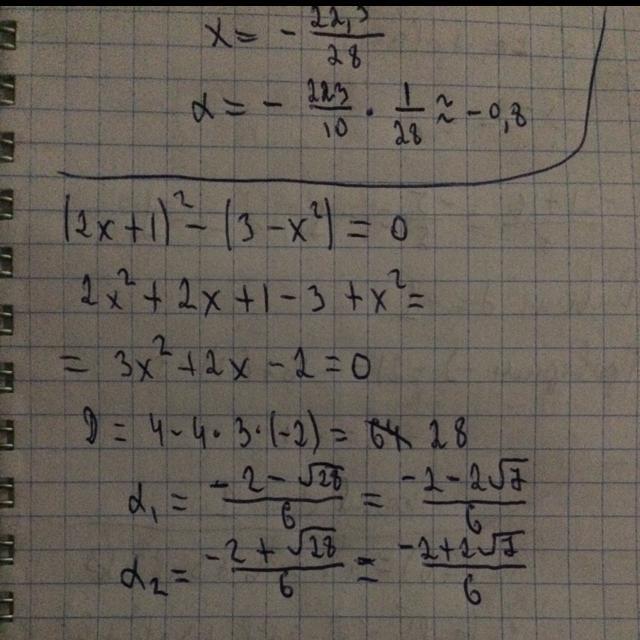 x = - 22,3/28
x = - 223/10 · 1/28 ≈ -0,8
(2x+1)² - (3-x²) = 0
2x² + 2x + 1 - 3 + x² =
= 3x² + 2x - 2 = 0
D = 4 - 4·3·(-2) = 28
x₁ = (-2 - √28)/6 = (-2 - 2√7)/6
x₂ = (-2 + √28)/6 = (-2 + 2√7)/6